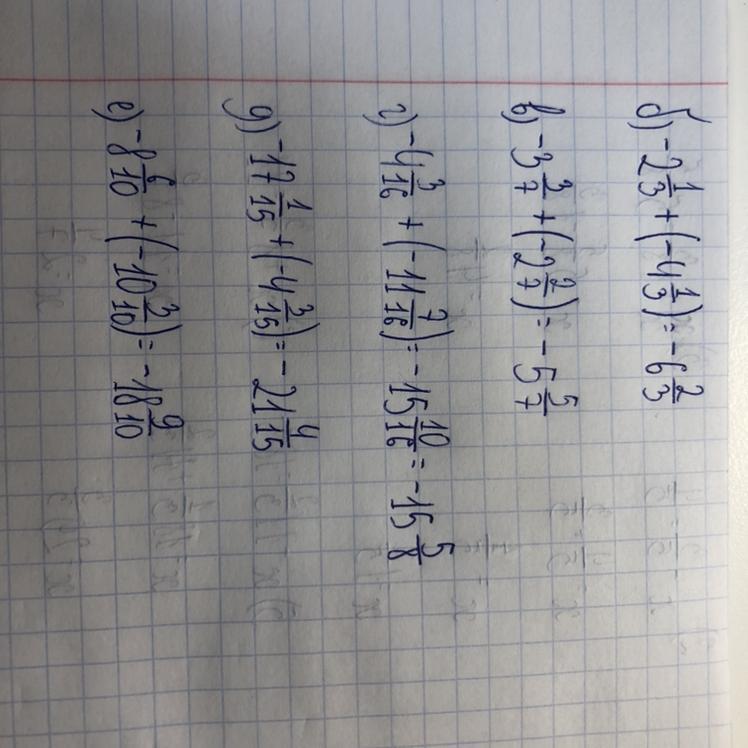 б) -2 1/3 + (-4 1/3) = -6 2/3
в) -3 3/7 + (-2 2/7) = -5 5/7
г) -4 3/16 + (-11 7/16) = -15 10/16 = -15 5/8
д) -17 1/15 + (-4 3/15) = -21 4/15
е) -8 6/10 + (-10 3/10) = -18 9/10